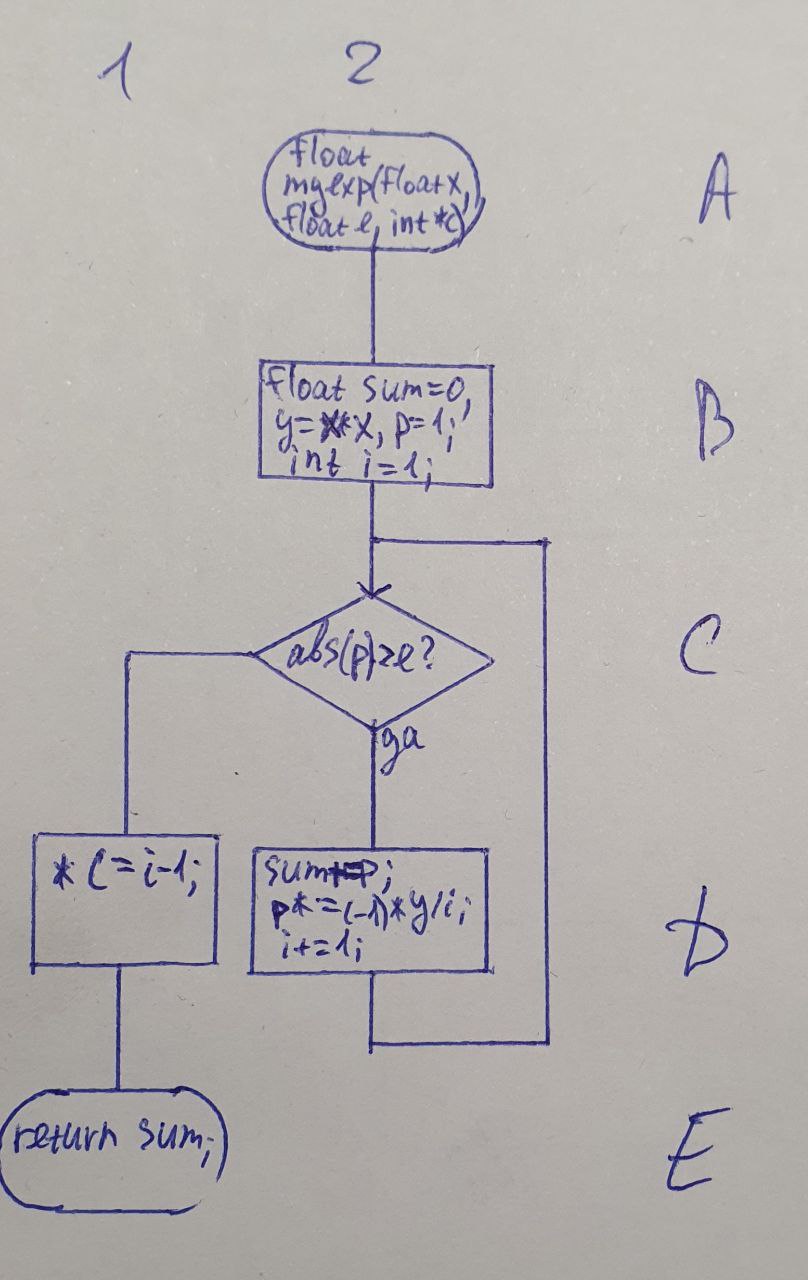 1 2
float
myexp(float x,
float e, int *c)
A
float sum=0,
y=x*x, p=1;
int i=1;
B
abs(p)≥e?
да
C
*c=i-1;
sum+=p;
p*=(-1)*y/i;
i+=1;
D
return sum;
E